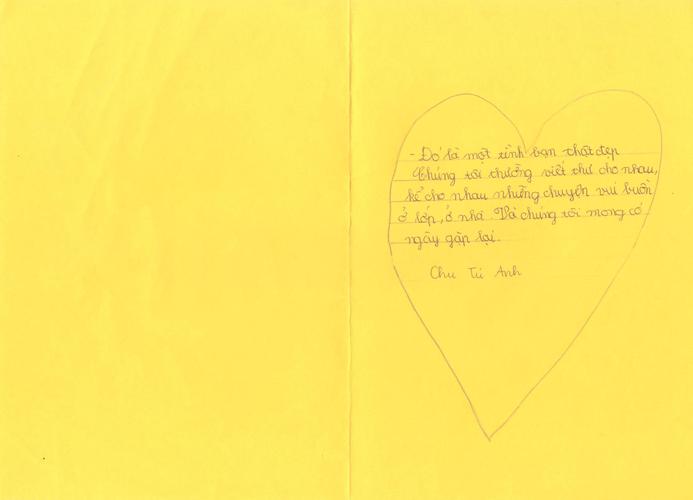 - Đó là một tình bạn thật đẹp
Chúng tôi thường viết thư cho nhau,
kể cho nhau những chuyện vui buồn
ở lớp, ở nhà. Và chúng tôi mong có
ngày gặp lại.
Chu Tú Anh